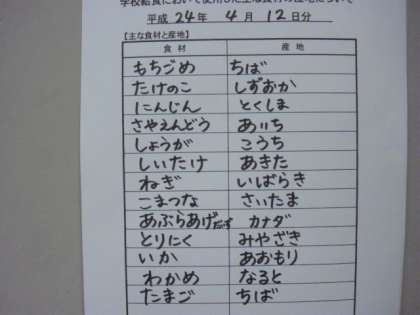 学校給食において使用した主な食材の産地について
平成 24年 4月 12日分
【主な食材と産地】
食材 産地
もちごめ ちば
たけのこ しずおか
にんじん とくしま
さやえんどう あいち
しょうが こうち
しいたけ あきた
ねぎ いばらき
こまつな さいたま
あぶらあげ だいず カナダ
とりにく みやざき
いか あおもり
わかめ なると
たまご ちば